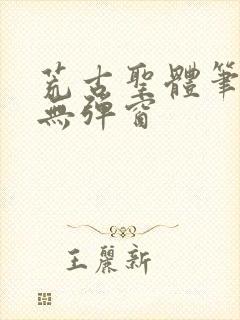 荒古聖體筆
無彈窗
王麗新